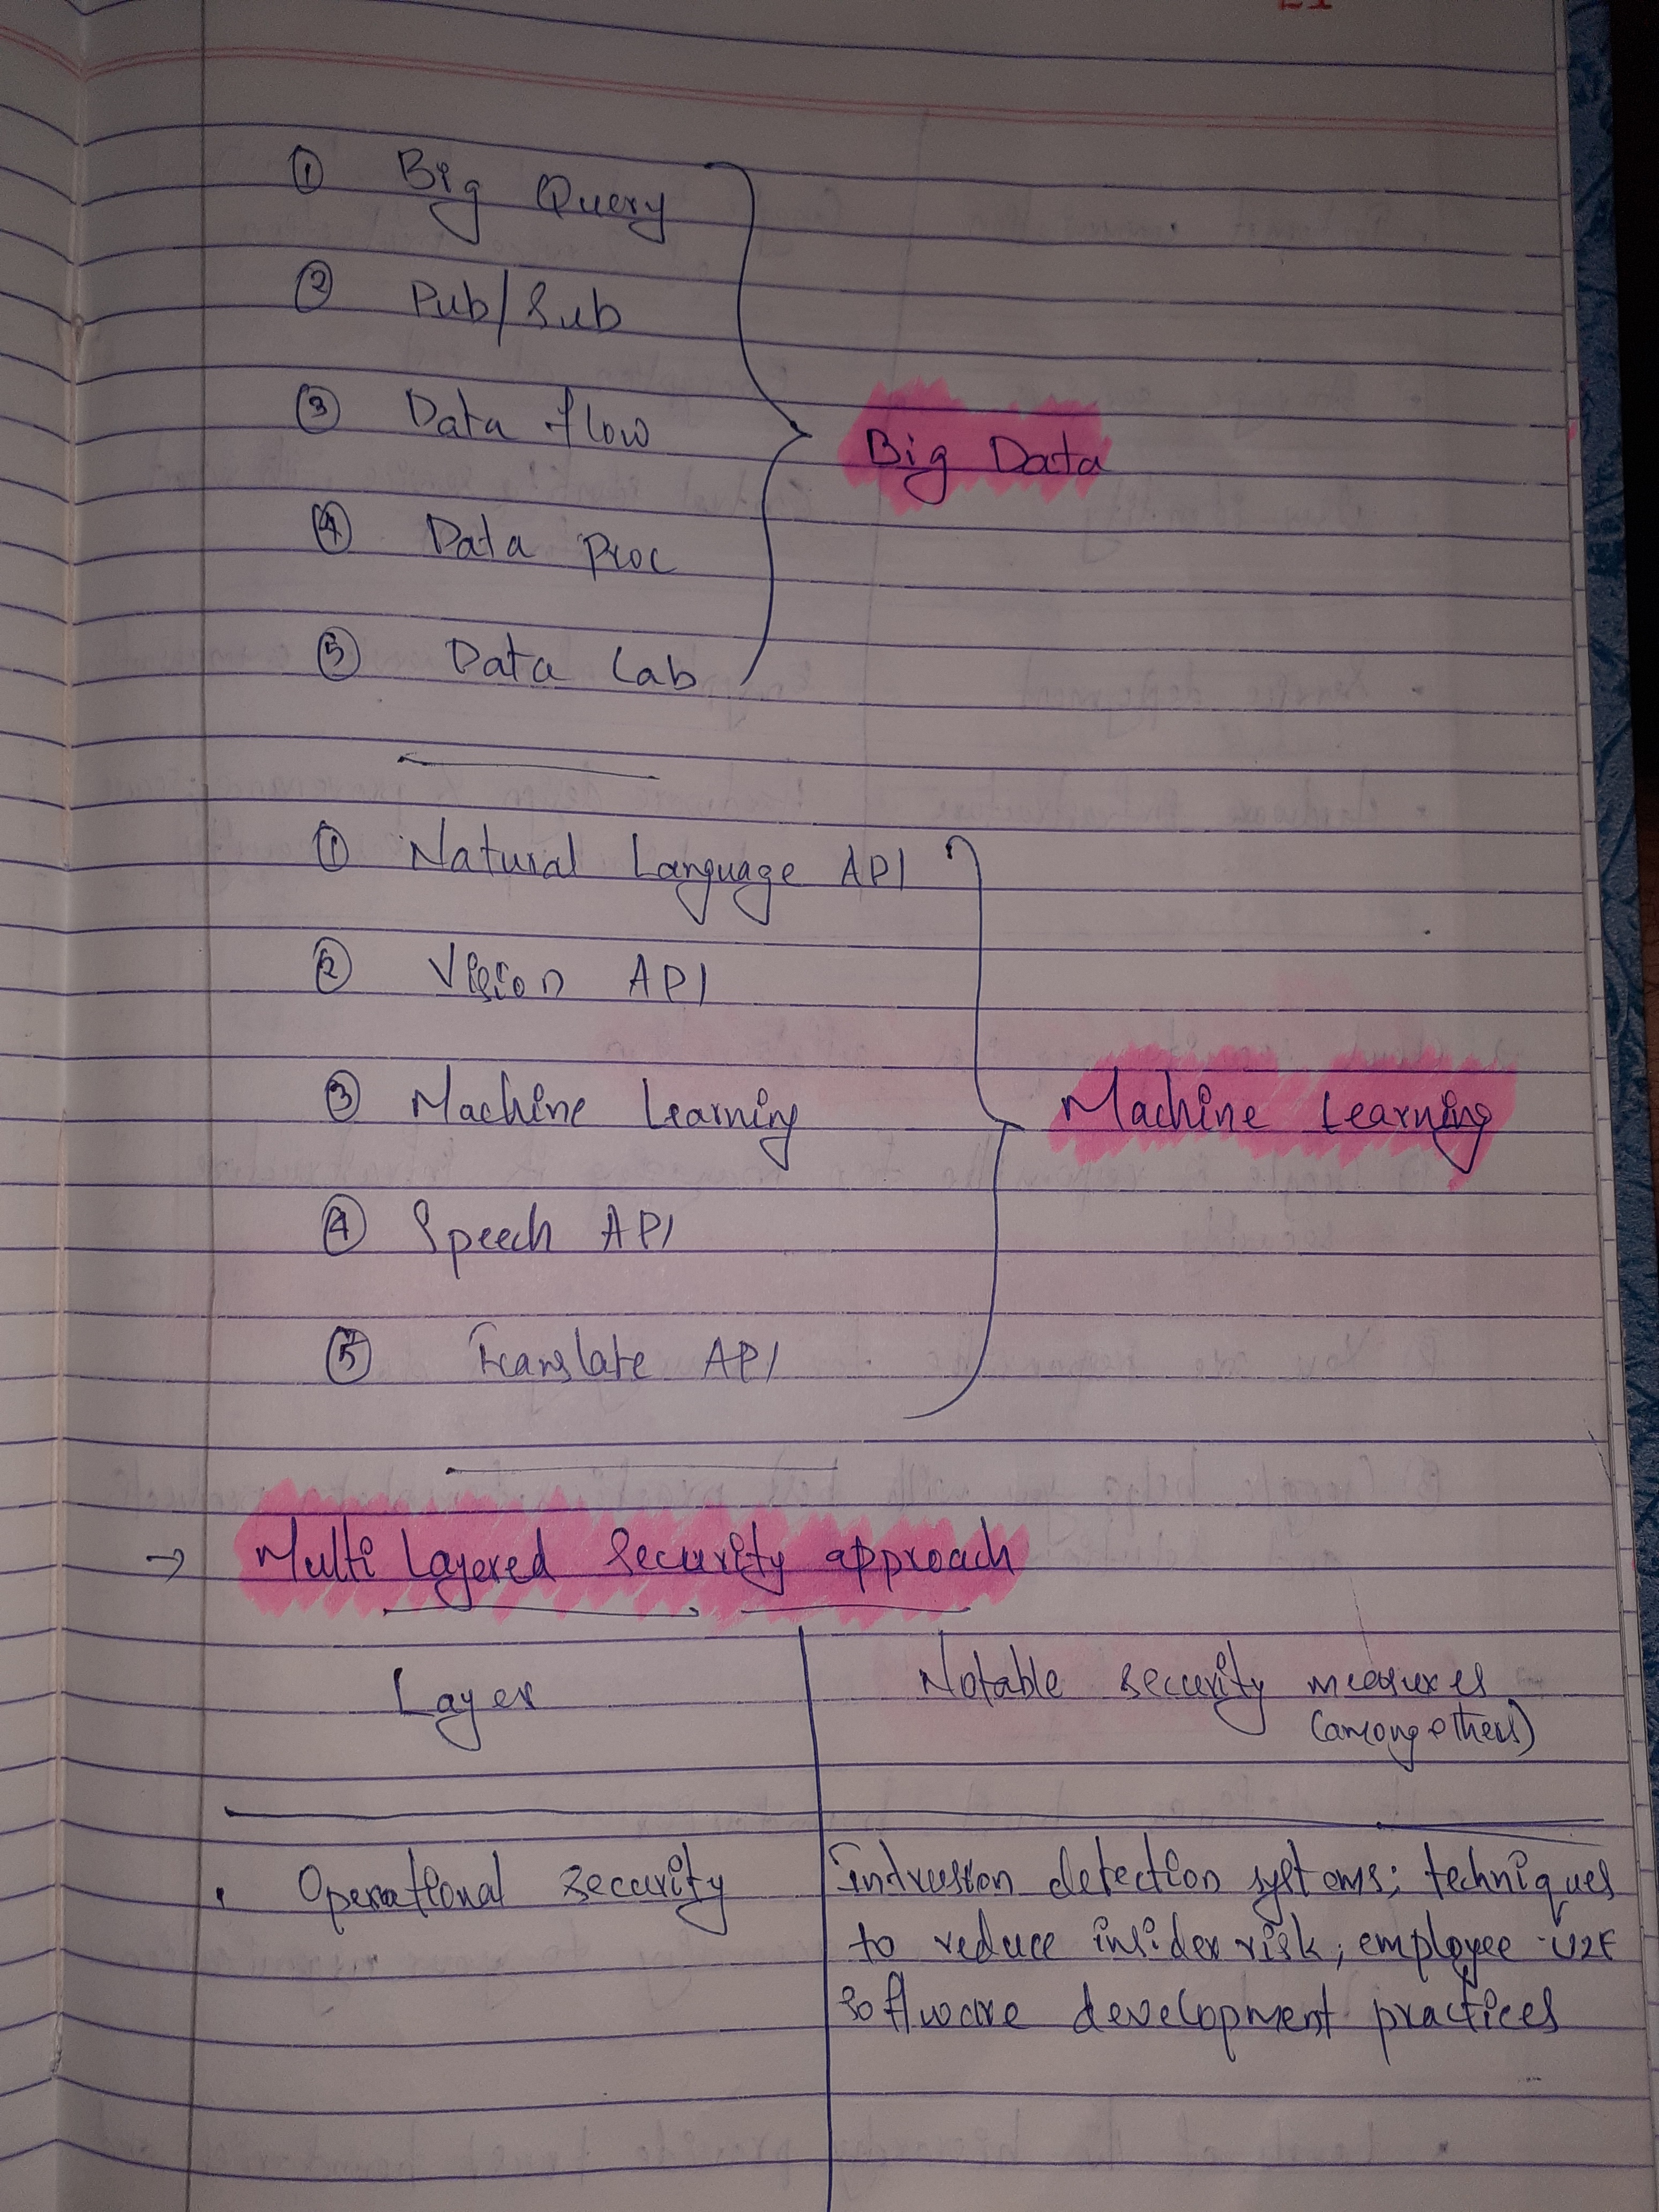 ① Big Query
② Pub/Sub
③ Data flow
④ Data Proc
⑤ Data Lab
Big Data
① Natural Language API
② Vision API
③ Machine Learning
④ Speech API
⑤ Translate API
Machine Learning
→ Multi Layered Security approach
Layer
Notable security measures
(among others)
• Operational security
Intrusion detection systems; techniques
to reduce insider risk; employee U2F
software development practices